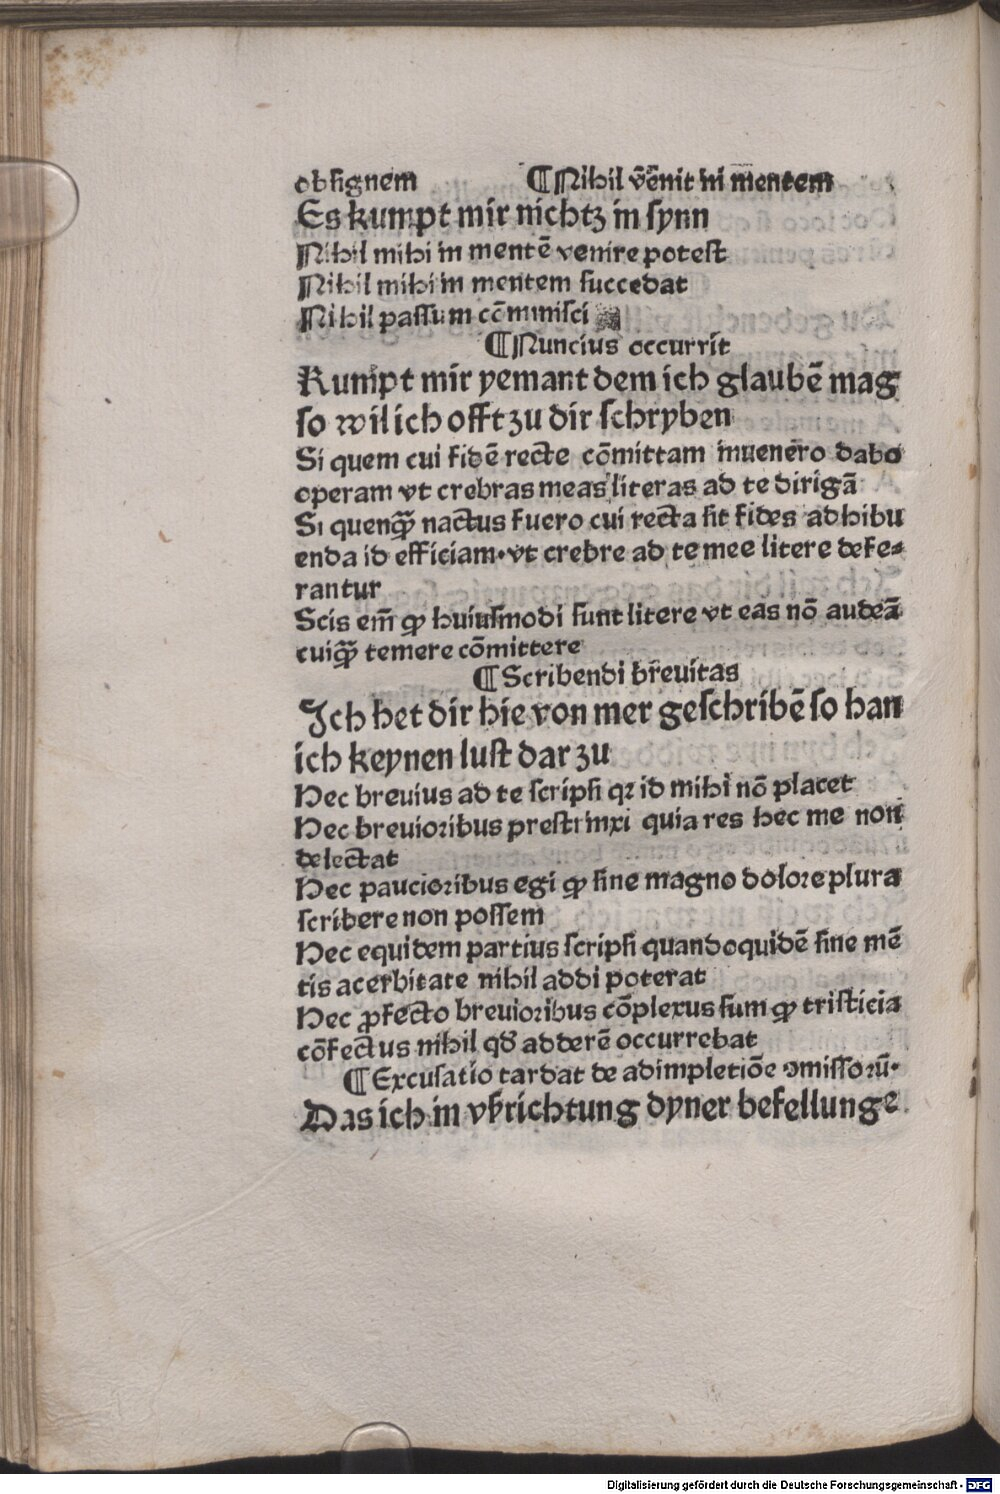 obsignem ¶Nihil vēnit in mentem
Es kumpt mir nichtz in synn
Nihil mihi in mentē venire potest
Nihil mihi in mentem succedat
Nihil passum cōminisci
¶Nuncius occurrit
Kumpt mir yemant dem ich glaubē mag
so wil ich offt zu dir schryben
Si quem cui fidē recte cōmittam inuenero dabo
operam vt crebras meas literas ad te dirigā
Si quenqꝫ nactus fuero cui recta sit fides adhibu
enda id efficiam·vt crebre ad te mee litere defe⸗
rantur
Scis em̄ ꝙ huiusmodi sunt litere vt eas nō audeā
cuiqꝫ temere cōmittere
¶Scribendi breuitas
Ich het dir hie von mer geschribē so han
ich keynen lust dar zu
Hec breuius ad te scripsi qꝛ id mihi nō placet
Hec breuioribus prestrinxi quia res hec me non
delectat
Hec paucioribus egi ꝙ sine magno dolore plura
scribere non possem
Hec equidem partius scripsi quandoquidē sine mē
tis acerbitate nihil addi poterat
Hec ꝓfecto breuioribus cōplexus sum ꝙ tristicia
cōfectus nihil qd̄ adderē occurrebat
¶Excusatio tardat de adimpletiōe ꝯmissoꝛū·
Das ich in vꝰrichtung dyner befellunge
Digitalisierung gefördert durch die Deutsche Forschungsgemeinschaft - DFG